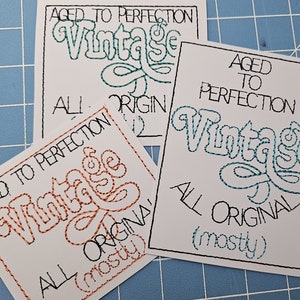 AGED TO PERFECTION
Vintage
ALL ORIGINAL
AGED
TO
PERFECTION
Vintage
ALL ORIGINAL
(mostly)
AGED TO PERFECTION
Vintage
ALL ORIGINAL
(mostly)